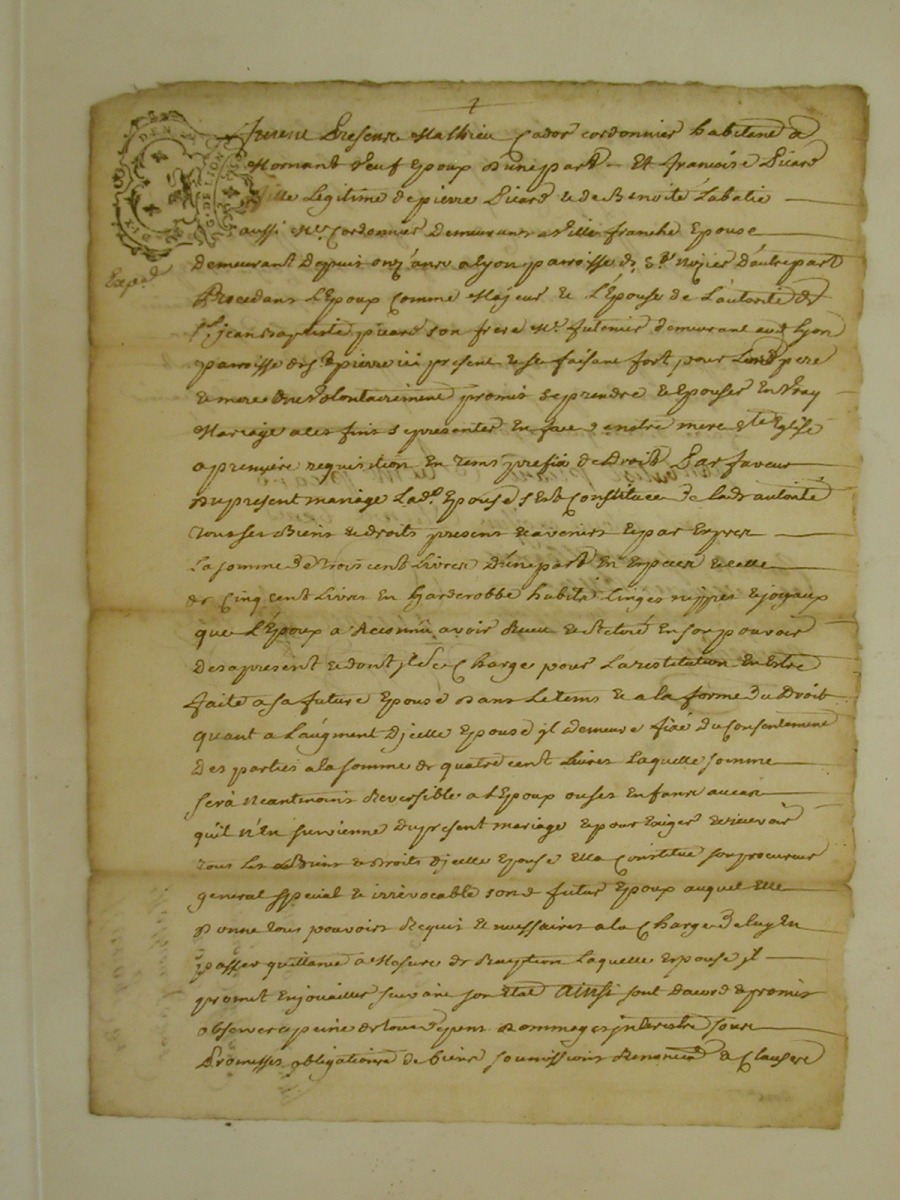 Furent Presents Mathieu Cador cordonnier habitant a
Mornant Veuf Epoux d'une part Et francoise Picard
fille Legitime de pierre Picard & de Benoite Labatie
aussi Me Cordonnier demeurans a Ville franche Epouse
Exped
demeurant depuis onz' ans a Lyon parroisse de St Nizier d'autre part
Procedans L'Epoux Comme Majeur & L'Epouse de L'autorité de
Sr jean Baptiste picard son frere Me futenier demeurant aud Lyon
parroisse de St pierre ici present & se faisant fort pour Leursd pere
& mere ont Volontairement promis se prendre & Epouser En Vray
Mariage a ces fins se presenter En face de notre mere Ste Eglise
a premiere requisition En tems prefix de Droit Par faveur
du present mariage Lade Epouse s'Est Constituée de lade autorité
tous ses Biens & droits presens & avenirs & par Exprez
La somme de trois cent Livres d'une part En Especes & celle
de Cinq cent Livres En Garderobbe habits Linges nippes & joyaux
que L'Epoux a Reconnu avoir Receu & Retiré En son pouvoir
des apresent & dont jl se Charge pour La restitution En Estre
faite a sa future Epouse dans Le tems & a la forme du Droit
quant a L'augment d'jcelle Epouse jl demeure fixé du Consentement
Des parties a la somme de quatre cent Livres Laquelle somme
sera Neantmoins Reversible a L'Epoux ou ses Enfans au cas
qu'il n'En survienne du present mariage & pour Exiger & recevoir
tous Les Biens & droits d'jcelle Epouse Elle Constitue son procureur
general special & irrevocable sond futur Epoux auquel Elle
donne tous pouvoirs Requis & necessaires a la Charge de luy En
passer quittance a Mesure de Reception Laquelle Epouse jl
promet Enjoailler suivant son Etat Ainsi sont d'acord & promis
observer a peine de tous depens dommages jnterests sous
Promesses obligations de biens soumissions Renonciaons & Clauses